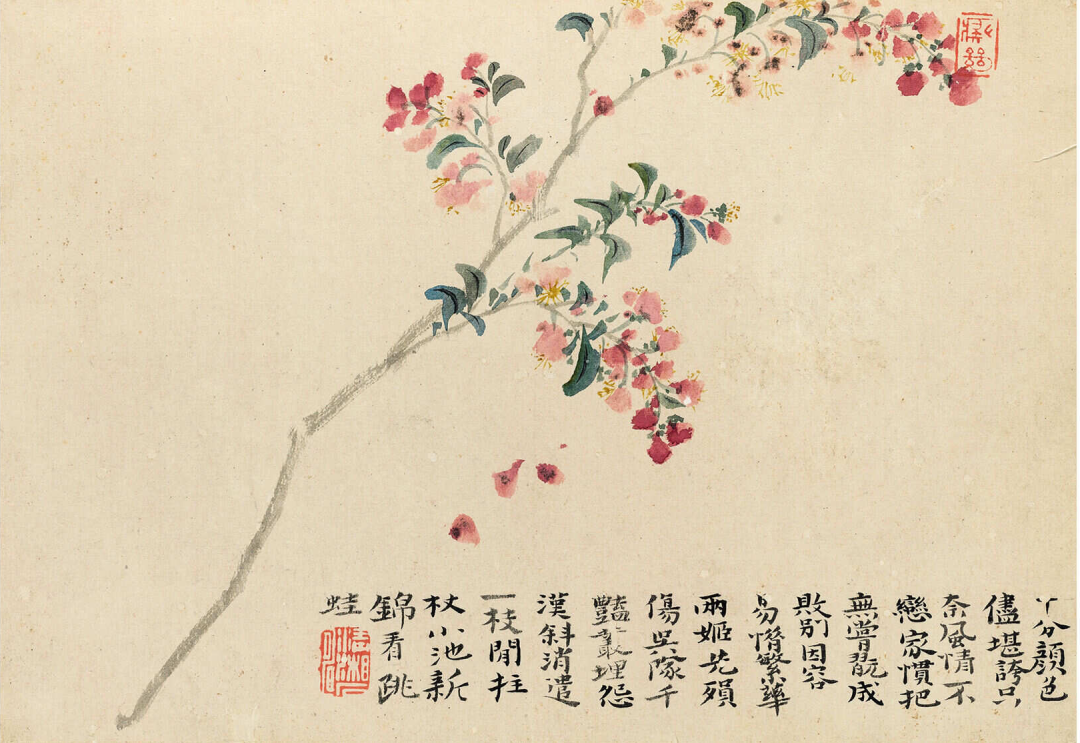 十分顏色
儘堪誇只
奈風情不
戀家慣把
無嘗翫成
敗別因容
易惜繁華
兩姬先殞
傷吳隊千
豔叢埋怨
漢斜消遣
一枝閒拄
杖小池新
錦看跳
蛙